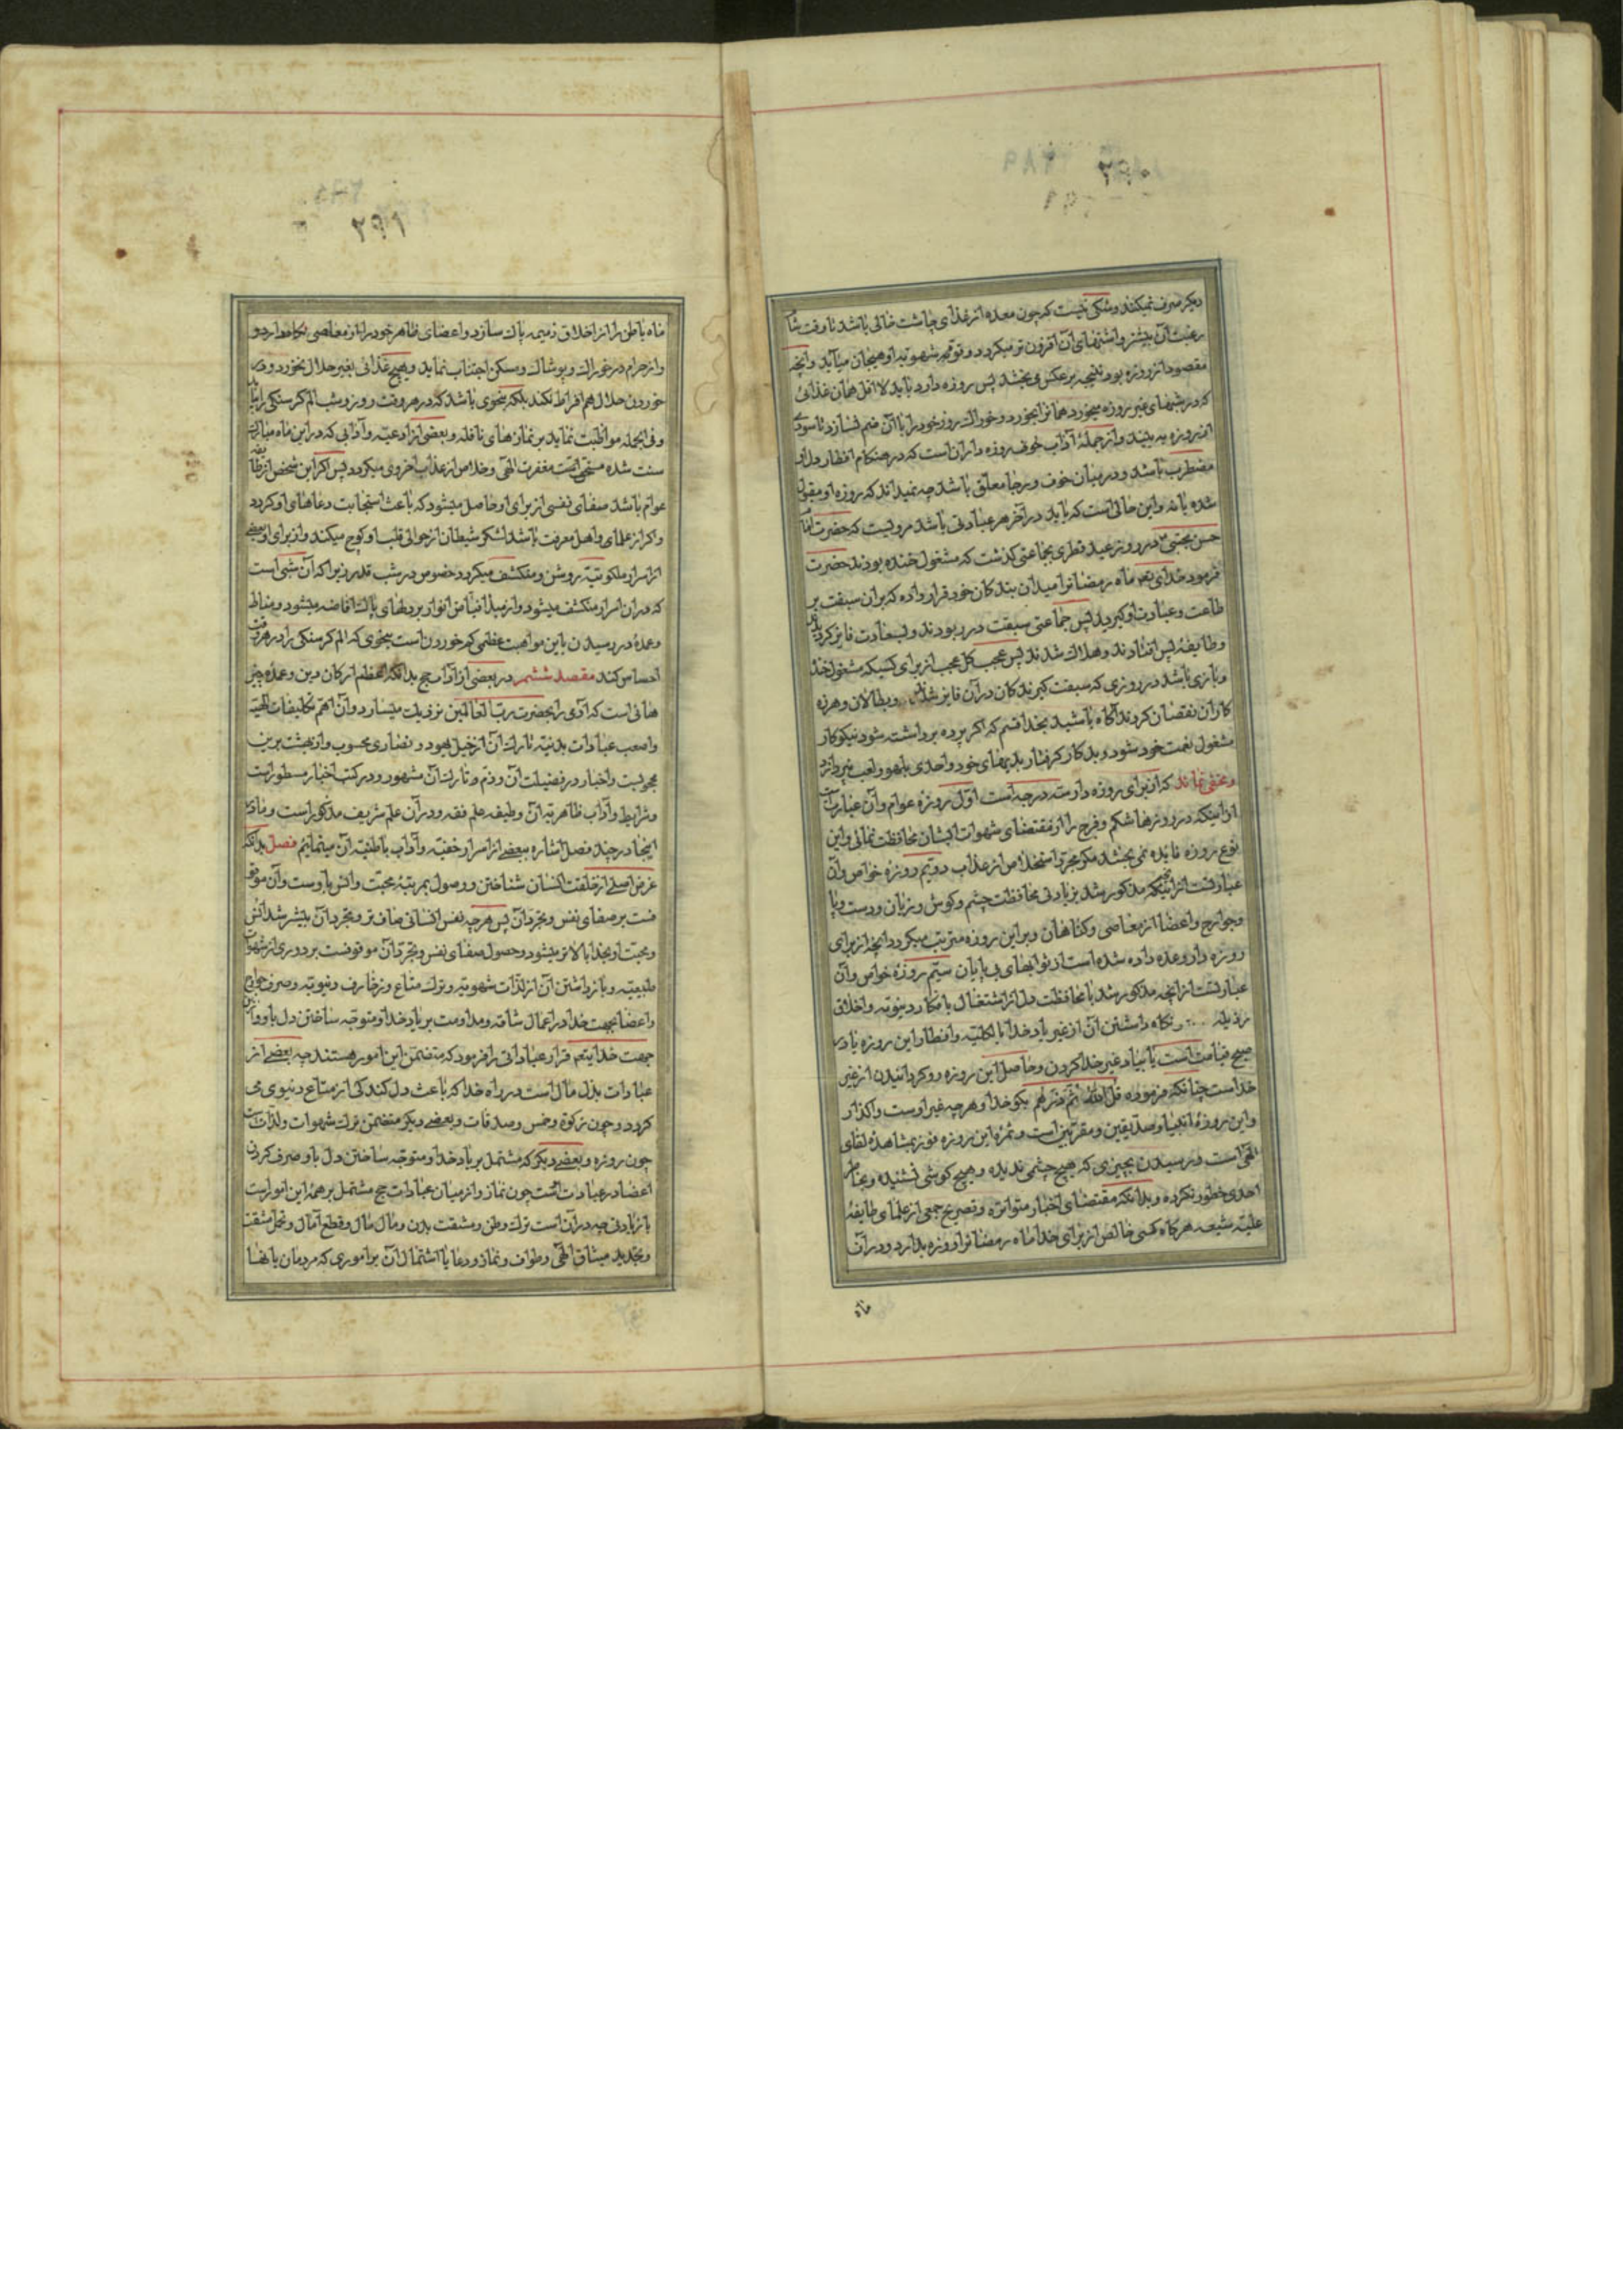 ۲۹۲
دیکر صرف نمیکند وشکی نیست که چون معده از غذای چاشت خالی باشد تا وقت شام
رغبت آن بیشتر واشتهای آن افزون تر میکردد وقوۀ شهویه او بهیجان میآید وانچه
مقصود از روزه بود نتیجه بر عکس می بخشد پس روزه دار باید لا اقل همان غذائی
که در شبهای غیر روزه میخورد همانرا بخورد وخوراك روز خود را با آن ضم نسازد تا سودی
از روزه به بیند واز جملۀ آداب خوف روزه داران است که در هنکام افطار دل او
مضطرب باشد ودر میان خوف ورجا معلق باشد چه نمیداند که روزه او مقبول
شده یا نه واین حالی است که باید در آخر هر عبادتی باشد مرویست که حضرت امام
حسن مجتبی در روز عید فطری بجماعتی کذشت که مشغول خنده بودند حضرت
فرمود خدای تعم ماه رمضانرا میدان بندکان خود قرار داده که بران سبقت بر
طاعت وعبادت او کیرید پس جماعتی سبقت در ربودند وبسعادت فایز کردیدند
وطایفۀ پس افتادند وهلاك شدند پس عجب کل عجب از برای کسیکه مشغول خنده
وبازی باشد در روزی که سبقت کیرندکان در آن فایز شدند وبطالان وهرزه
کاران نقصان کردند آکاه باشید بخدا قسم که اکر پرده برداشته شود نیکوکار
مشغول نعمت خود شود وبدکار کرفتار بدیهای خود واحدی بلهو ولعب نپردازد
ومخفی نماند که از برای روزه دار سه درجه است اول روزه عوام وآن عبارتست
از اینکه در روزها شکم وفرج را از مقتضای شهوات ایشان محافظت نمائی واین
نوع روزه فایده نمی بخشد مکر مجرد استخلاص از عذاب دویم روزه خواص وآن
عبارتست از اینکه مذکور شد بزیادتی محافظت چشم وکوش وزبان ودست وپا
وجوارح واعضا از معاصی وکناهان وبر این روزه مترتب میکردد انچه از برای
روزه دار وعده داده شده است از ثوابهای بی پایان سیم روزۀ خواص وآن
عبارتست از انچه مذکور شد با محافظت دل از اشتغال بافکار دنیویه واخلاق
رذیله ونکاه داشتن آن از غیر یاد خدا بالکلیه وافطار این روزه یاد
صبح قیامت است یا بیاد غیر خدا کردن وحاصل این روزه رو کردانیدن از غیر
خداست چنانکه فرموده قل الله ثم ذرهم بکو خدا وهر چه غیر اوست واکذار
واین روزۀ انبیا وصدیقین ومقربین است وثمرۀ این روزه فوز بمشاهدۀ لقای
الهی است ورسیدن بچیزی که هیچ چشمی ندیده وهیچ کوشی نشنیده وبخاطر
احدی خطور نکرده وبدانکه مقتضای اخبار متواتره وتصریح جمعی از علمای طایفۀ
علیه شیعه هرکاه کسی خالص از برای خدا ماه رمضانرا روزه بدارد ودر آن
ماه
۲۹۱
ماه باطن را از اخلاق ذمیمه پاك سازد واعضای ظاهر خود را از معاصی نکاه دارد و
واز حرام در خوراك وپوشاك ومسکن اجتناب نماید وهیچ غذائی بغیر حلال نخورد ودر
خوردن حلال هم افراط نکند بلکه بنحوی باشد که در هر وقت روز وشب الم کرسنکی را بیابد
وفی الجمله مواظبت نماید بر نمازهای نافله وبعضی از ادعیه وآدابی که در این ماه مبارك
سنت شده مستحق است مغفرت الهی وخلاص از عذاب اخروی میکردد پس اکر این شخص از طایفه
عوام باشد صفای نفسی از برای او حاصل میشود که باعث استجابت دعاهای او کردد
واکر از علمای واهل معرفت باشد لشکر شیطان از حوالی قلب او کوچ میکند واز برای او بعضی
از اسرار ملکوتیه روشن ومنکشف میکردد خصوص در شب قدر زیرا که آن شبی است
که در آن اسرار منکشف میشود واز مبدأ فیاض انوار بر دلهای پاك افاضه میشود ومناط
وعمدۀ در رسیدن باین مواهب عظمی کم خوردن است بنحوی که الم کرسنکی را در هر وقت
احساس کند مقصد ششم در بعضی از آداب حج بدانکه اعظم ارکان دین وعمدۀ چیز
هائی است که آدمی را بحضرت رب العالمین نزدیك میسازد وآن اهم تکلیفات الهیه
واصعب عبادات بدنیه تارك آن از خیل یهود ونصاری محسوب واز بهشت برین
محجوبست واخبار در فضیلت آن وذم وتارك آن مشهور ودر کتب اخبار مسطور است
وشرایط وآداب ظاهریۀ آن وظیفه علم فقه ودر آن علم شریف مذکور است وما در
اینجا در چند فصل اشاره ببعضی از اسرار خفیه وآداب باطنیه آن مینمائیم فصل بدانکه
غرض اصلی از خلقت انسان شناختن ووصول بمرتبۀ محبت وانس باوست وآن موقو
فست بر صفای نفس وتجرد آن پس هر چه نفس انسانی صاف تر وتجرد آن بیشتر شد انس
ومحبت او بخدا بالاتر میشود وحصول صفای نفس وتجرد آن موقوفست بر دوری از شهوات
طبیعیه وبازداشتن آن از لذات شهویه وترك متاع وزخارف دنیویه وصرف جوارح
واعضا بجهت خدا در اعمال شاقه ومداومت بر یاد خدا ومتوجه ساختن دل باو واز این
جهت خدایتعم قرار عباداتی را فرمود که متضمن این امور هستند چه بعضی از
عبادات بذل مال است در راه خدا که باعث دل کندکی از متاع دنیوی می
کردد وچون زکوة وخمس وصدقات وبعضی دیکر متضمن ترك شهوات ولذات است
چون روزه وبعضی دیکر که مشتمل بر یاد خدا ومتوجه ساختن دل باو وصرف کردن
اعضا در عبادات است چون نماز واز میان عبادات حج مشتمل بر همۀ این امور است
با زیادتی چه در آن است ترك وطن ومشقت بدن وبذل مال وقطع آمال وتحمل مشقت
وتجدید میثاق الهی وطواف ونماز ودعا با اشتمال آن بر اموری که مردمان بانها